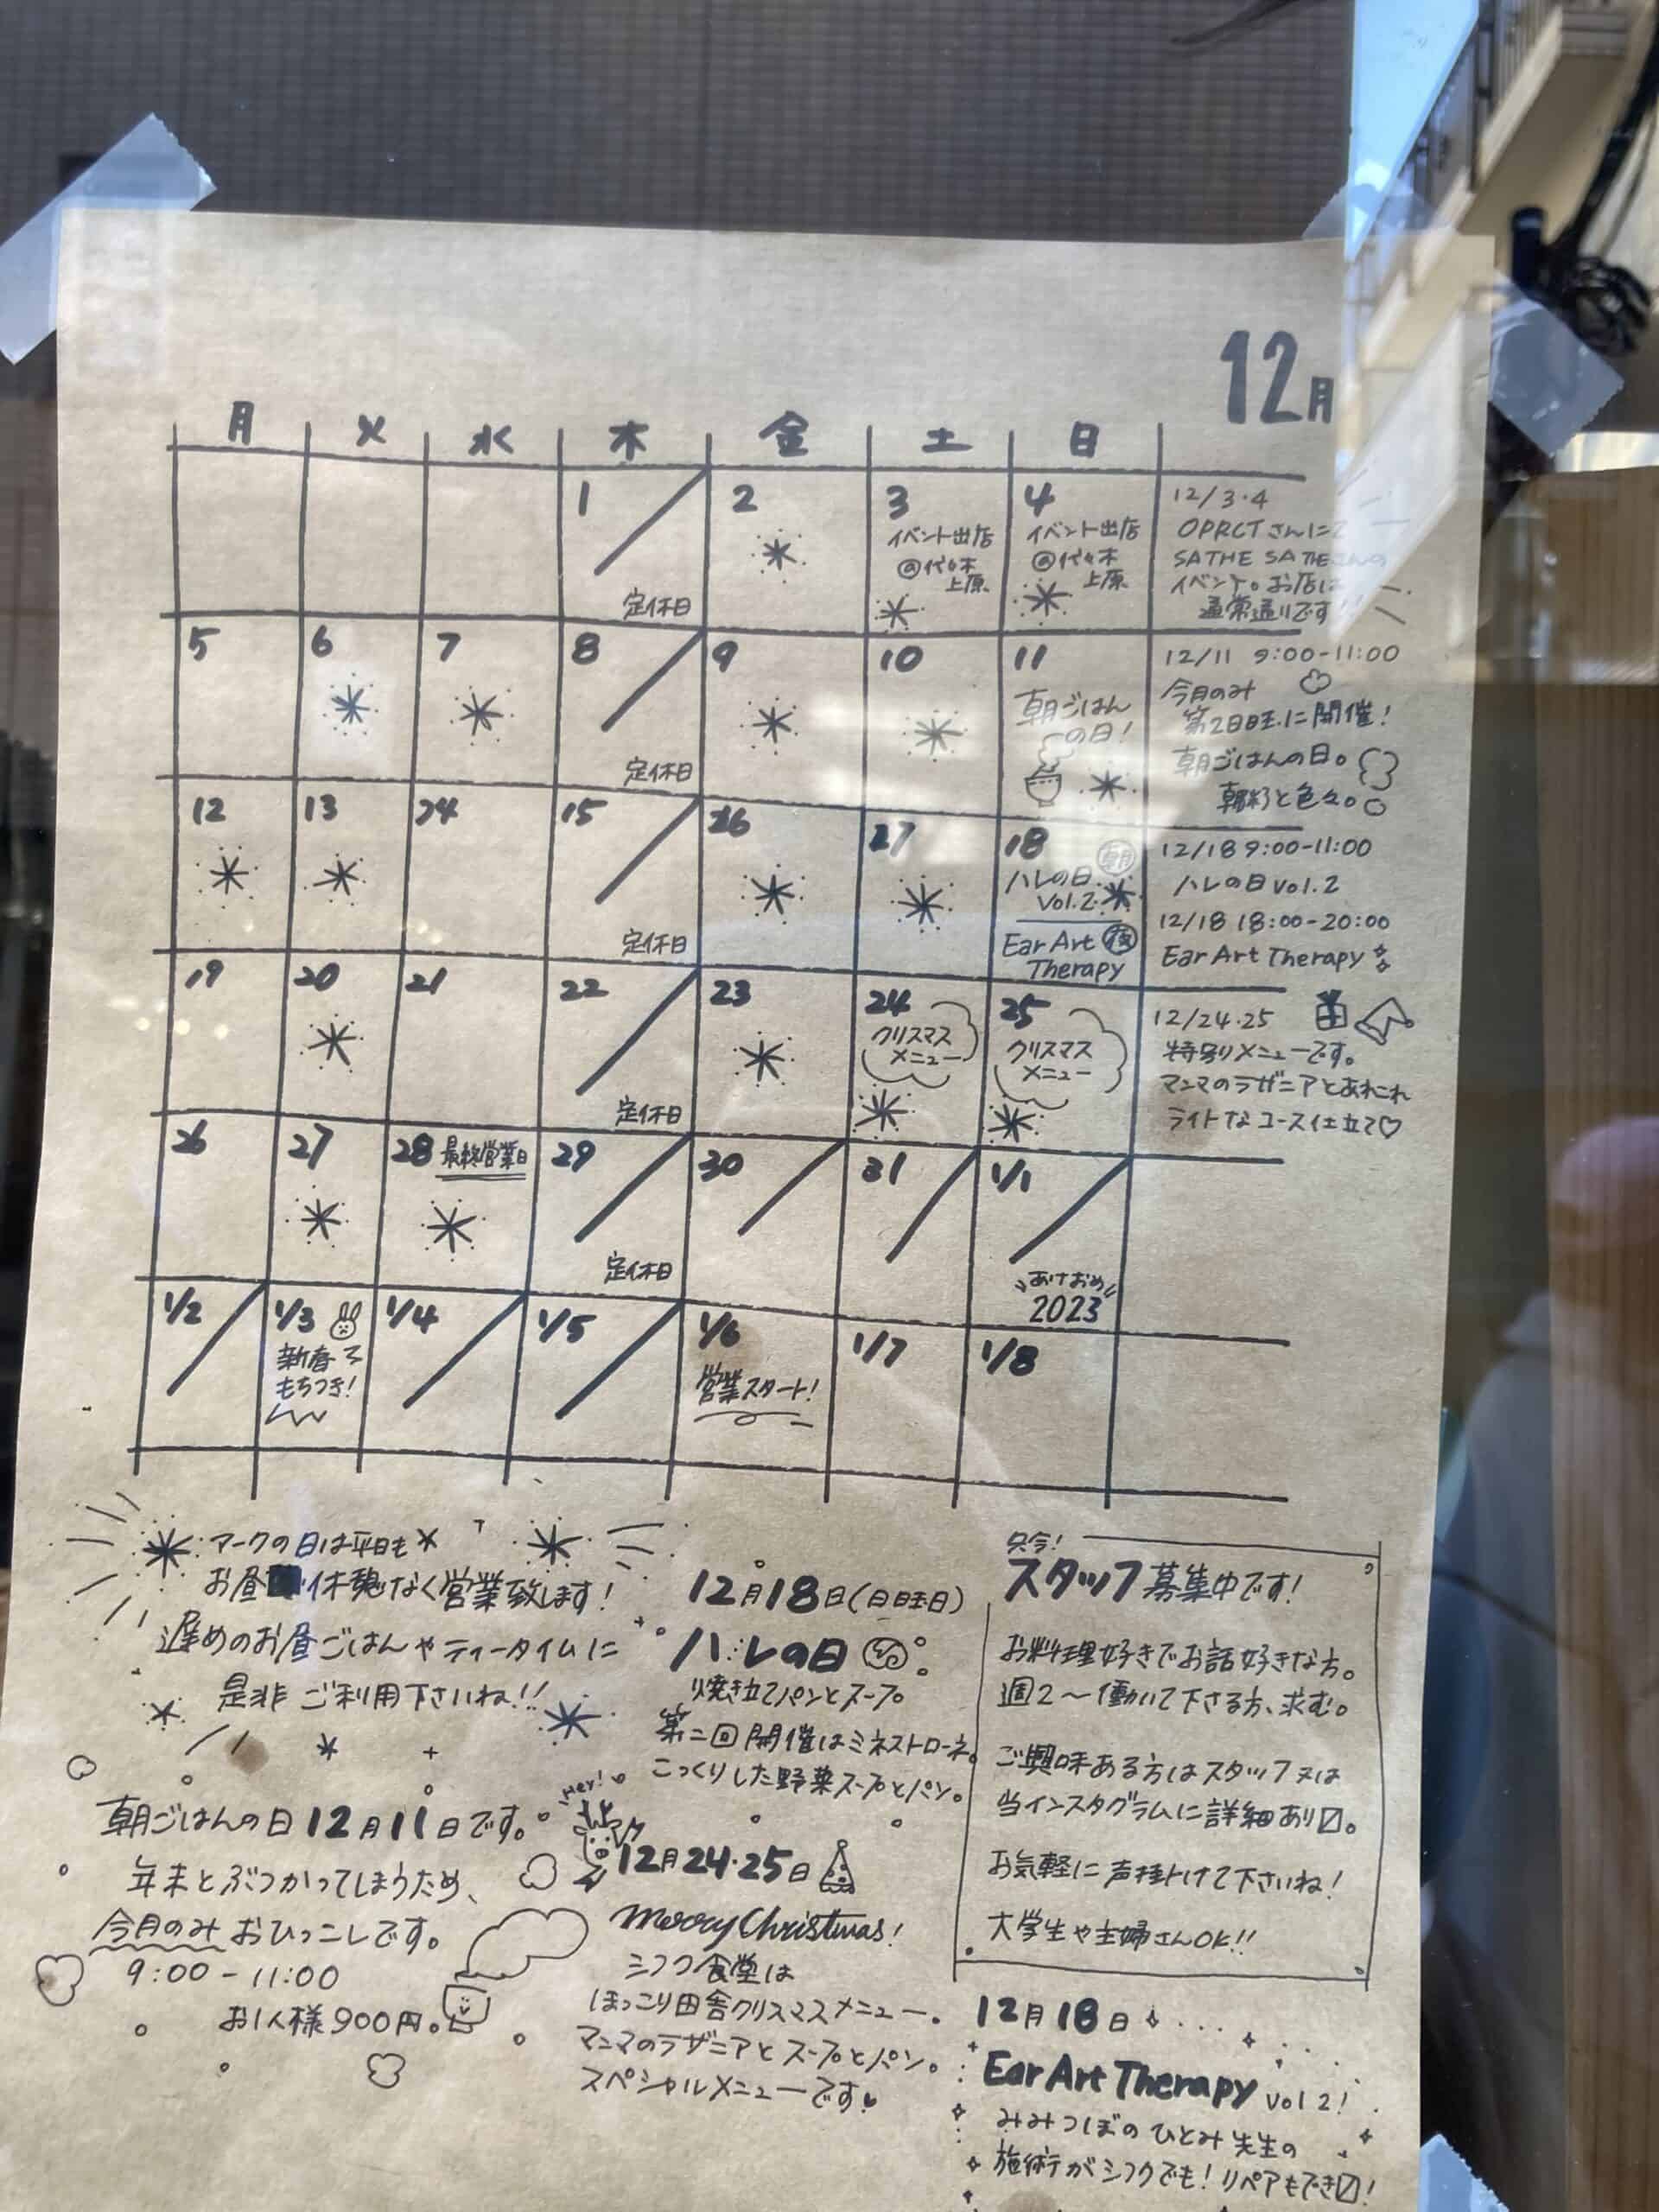 12月
月 火 水 木 金 土 日
1
定休日
2
3
イベント出店
@代々木
上原
4
イベント出店
@代々木
上原
12/3・4
OPRCTさんにて
SATHE SATHEさんの
イベント。お店は
通常通りです
5
6
7
8
定休日
9
10
11
朝ごはん
の日!
12/11 9:00-11:00
今月のみ
第2日曜に開催!
朝ごはんの日。
朝粥と色々。
12
13
14
15
定休日
16
17
18
朝
ハレの日
Vol.2
Ear Art 夜
Therapy
12/18 9:00-11:00
ハレの日 vol.2
12/18 18:00-20:00
Ear Art Therapy
19
20
21
22
定休日
23
24
クリスマス
メニュー
25
クリスマス
メニュー
12/24・25
特別メニューです。
マンマのラザニアとあれこれ
ライトなコース仕立て♡
26
27
28 最終営業日
29
定休日
30
31
1/1
あけおめ
2023
1/2
1/3
新春
もちつき!
1/4
1/5
1/6
営業スタート!
1/7
1/8
マークの日は平日も
お昼休憩なく営業致します!
遅めのお昼ごはんやティータイムに
是非ご利用下さいね!!
朝ごはんの日12月11日です。
年末とぶつかってしまうため、
今月のみおひっこしです。
9:00-11:00
お1人様900円。
12月18日(日曜日)
ハレの日
焼き立てパンとスープ。
第二回開催はミネストローネ。
こっくりした野菜スープとパン。
Hey!
12月24・25日
Merry Christmas!
シフク食堂は
ほっこり田舎クリスマスメニュー。
マンマのラザニアとスープとパン。
スペシャルメニューです♥
只今!
スタッフ募集中です!
お料理好きでお話好きな方。
週2〜働いて下さる方、求む。
ご興味ある方はスタッフ又は
当インスタグラムに詳細あり〼。
お気軽に声掛けて下さいね!
大学生や主婦さんOK!!
12月18日
Ear Art Therapy vol 2!
みみつぼのひとみ先生の
施術がシフクでも!リペアもでき〼!